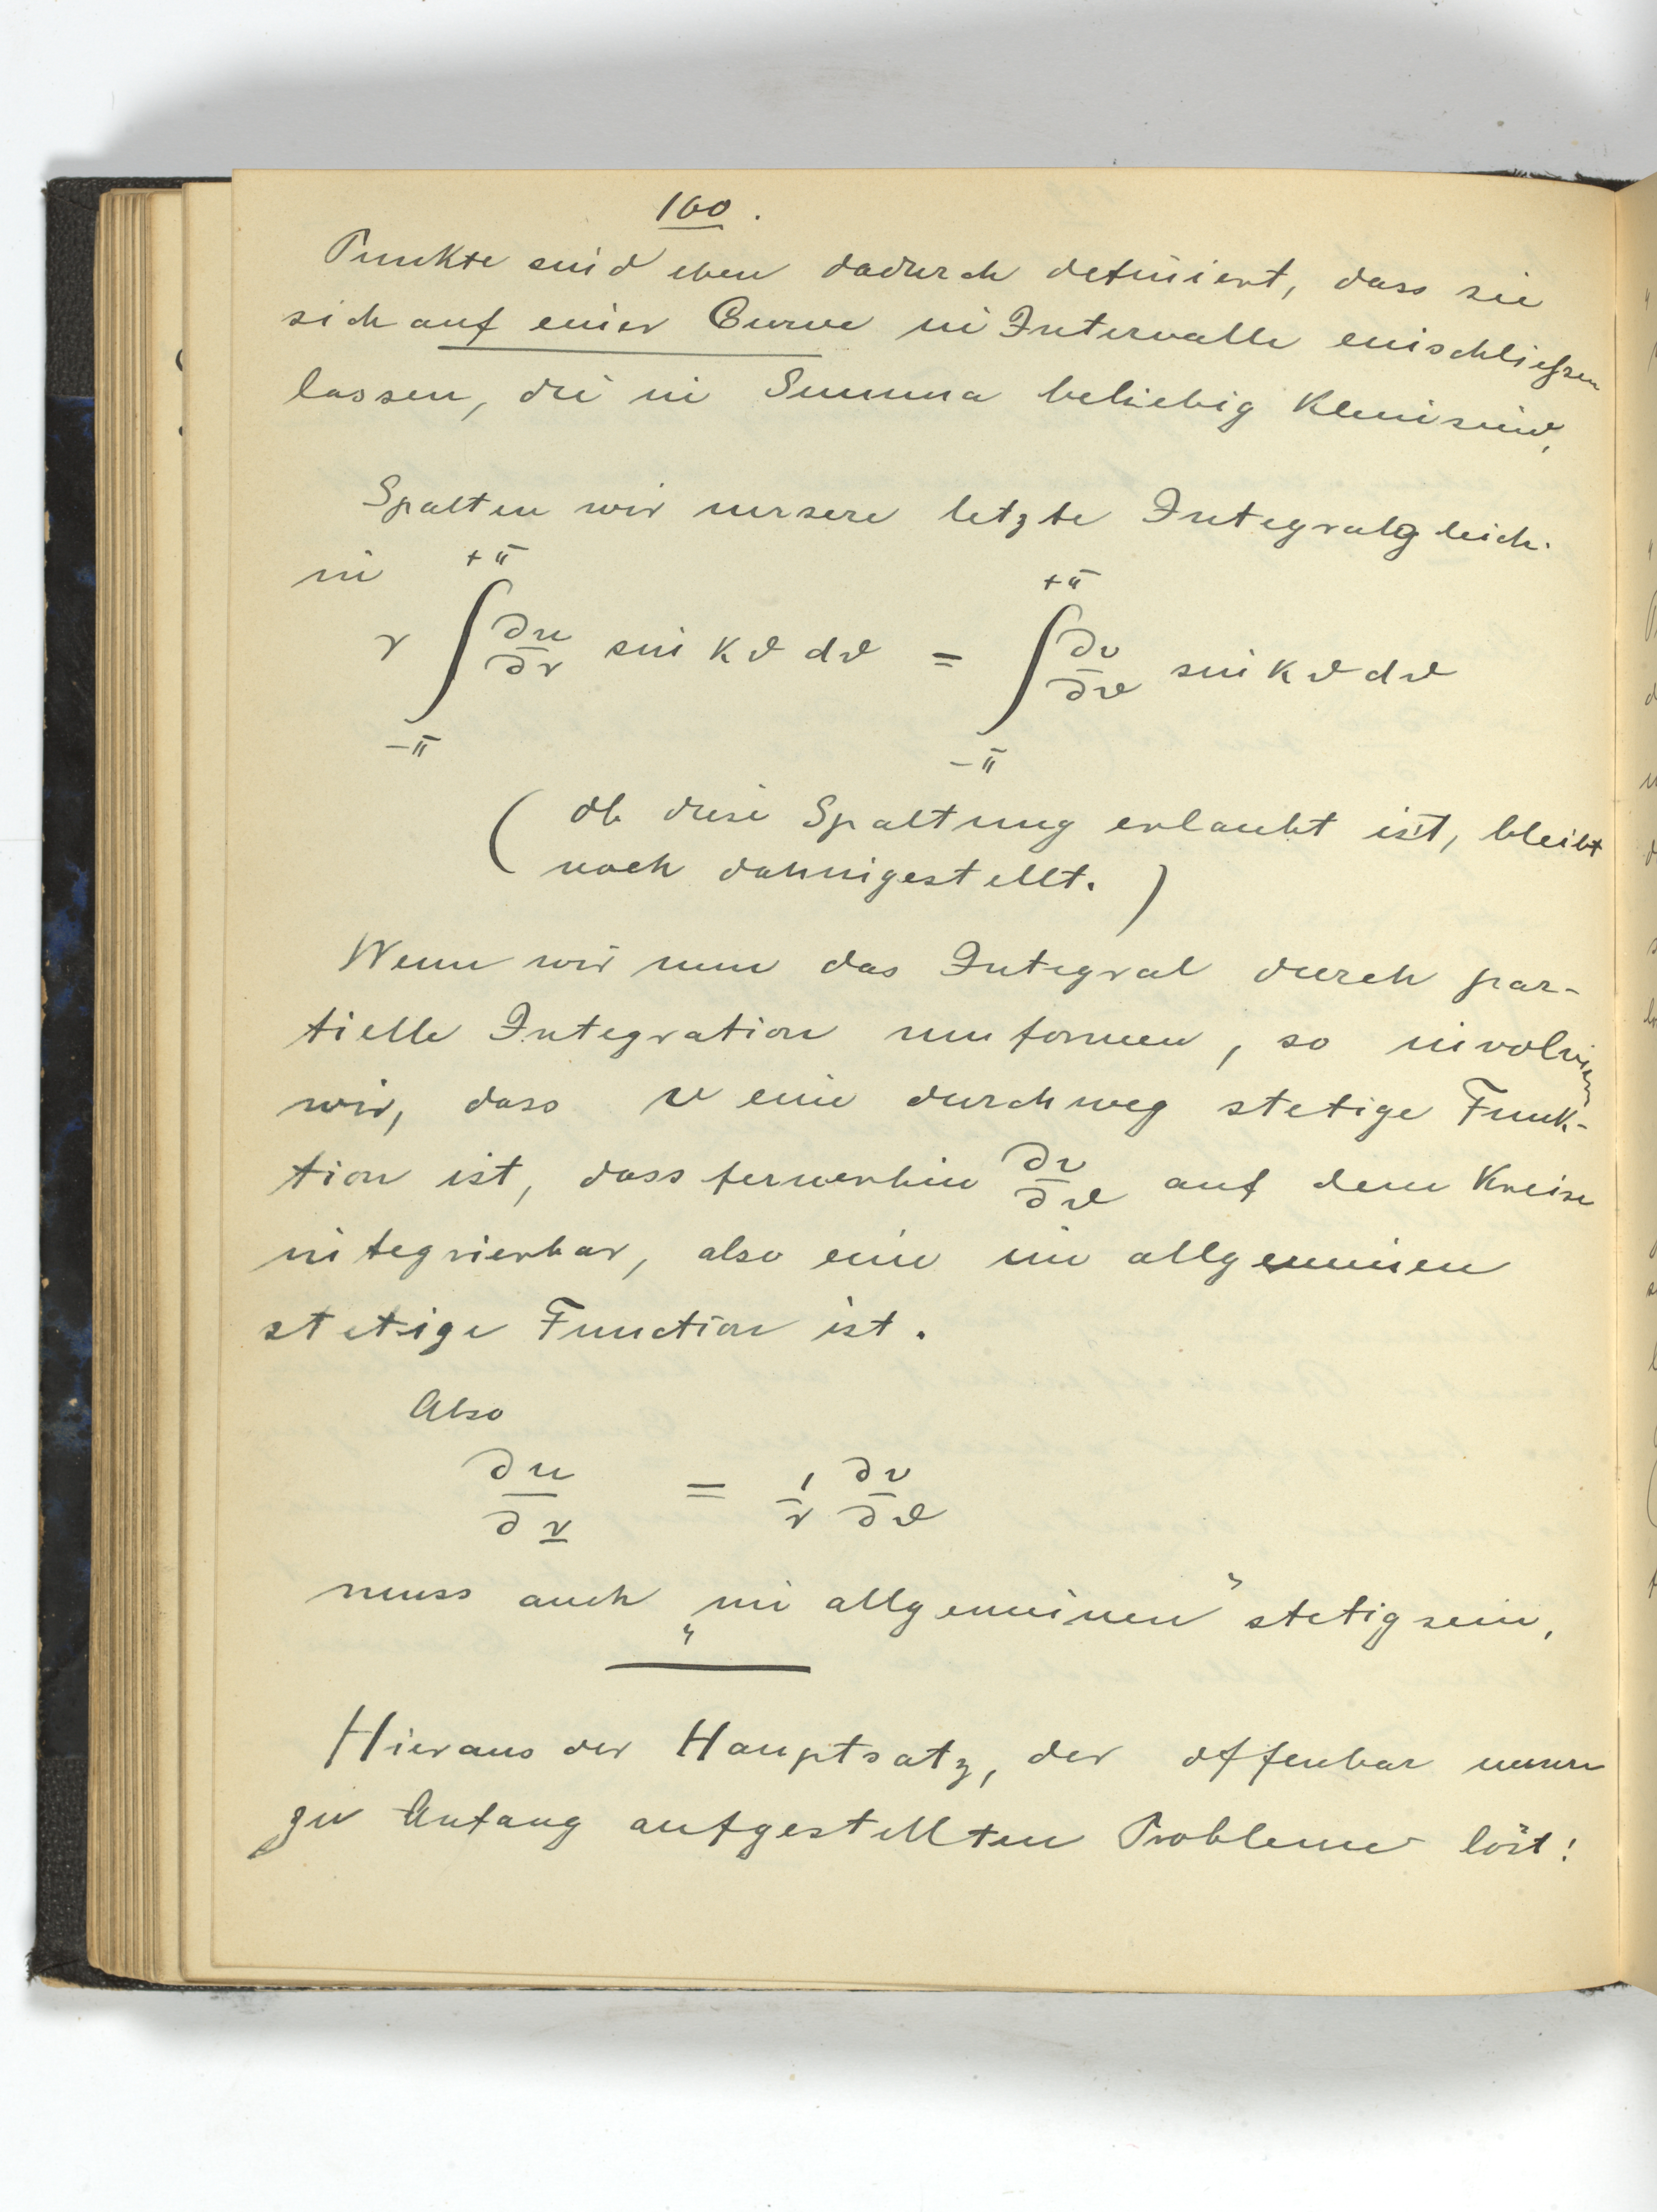 160.
Punkte sind eben dadurch definiert, dass sie
sich auf einer Curve in Intervalle einschließen
lassen, die in Summa beliebig klein sind,
Spalten wir unsere letzte Integralgleich.
in
r ∫_{-π}^{+π} ∂u/∂r sin kϑ dϑ = ∫_{-π}^{+π} ∂v/∂ϑ sin kϑ dϑ
(Ob diese Spaltung erlaubt ist, bleibt
noch dahingestellt.)
Wenn wir nun das Integral durch par-
tielle Integration umformen, so involvieren
wir, dass v eine durchweg stetige Funk-
tion ist, dass fernerhin ∂v/∂ϑ auf dem Kreise
integrierbar, also eine im allgemeinen
stetige Function ist.
Also
∂u/∂r = 1/r ∂v/∂ϑ
muss auch „im allgemeinen“ stetig sein,
Hieraus der Hauptsatz, der offenbar unsere
zu Anfang aufgestellten Probleme löst!